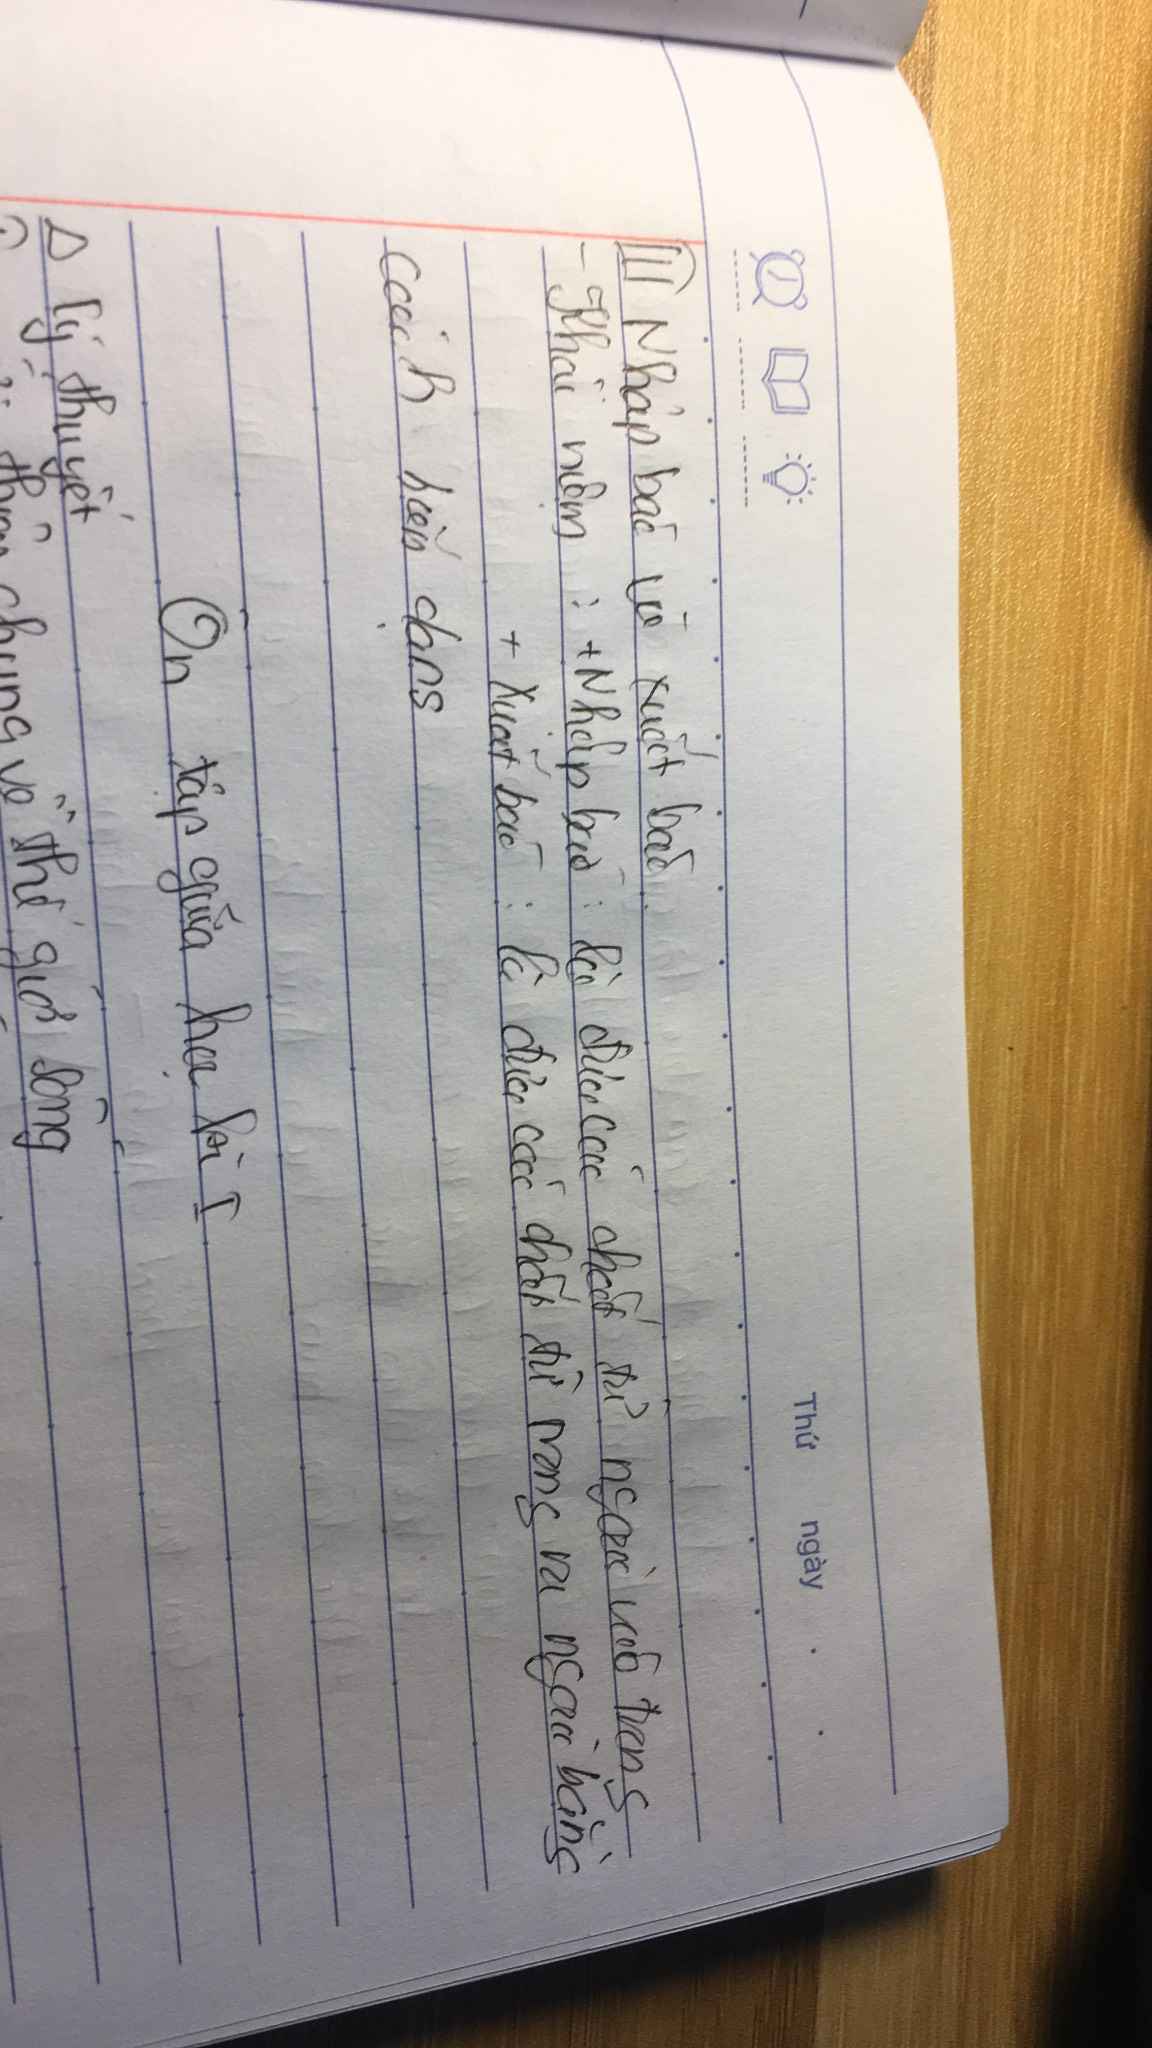 Thứ ngày
III Nhập bào và xuất bào.
- Khái niệm : + Nhập bào : là đưa các chất từ ngoài vào trong
+ Xuất bào : là đưa các chất từ trong ra ngoài bằng
cách biến dạng
Ôn tập giữa học kì I
A lý thuyết
chung về thế giới sống